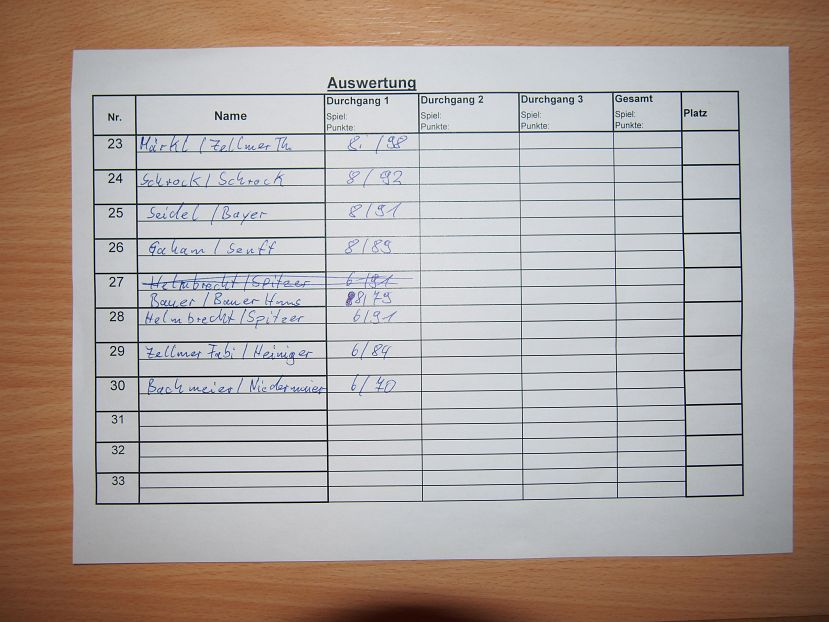 Auswertung
Nr. Name Durchgang 1 Durchgang 2 Durchgang 3 Gesamt Platz
Spiel: Spiel: Spiel: Spiel:
Punkte: Punkte: Punkte: Punkte:
23 Märkl / Zellmer Th. 8. / 98
24 Schrock / Schrock 8 / 92
25 Seidel / Bayer 8 / 91
26 Gaham / Senft 8 / 89
27 Helmbrecht / Spitzer 6 / 91
Bauer / Bauer Hans 8 / 79
28 Helmbrecht / Spitzer 6 / 91
29 Zellmer Fabi / Heiniger 6 / 84
30 Bachmeier / Niedermeier 6 / 70
31
32
33